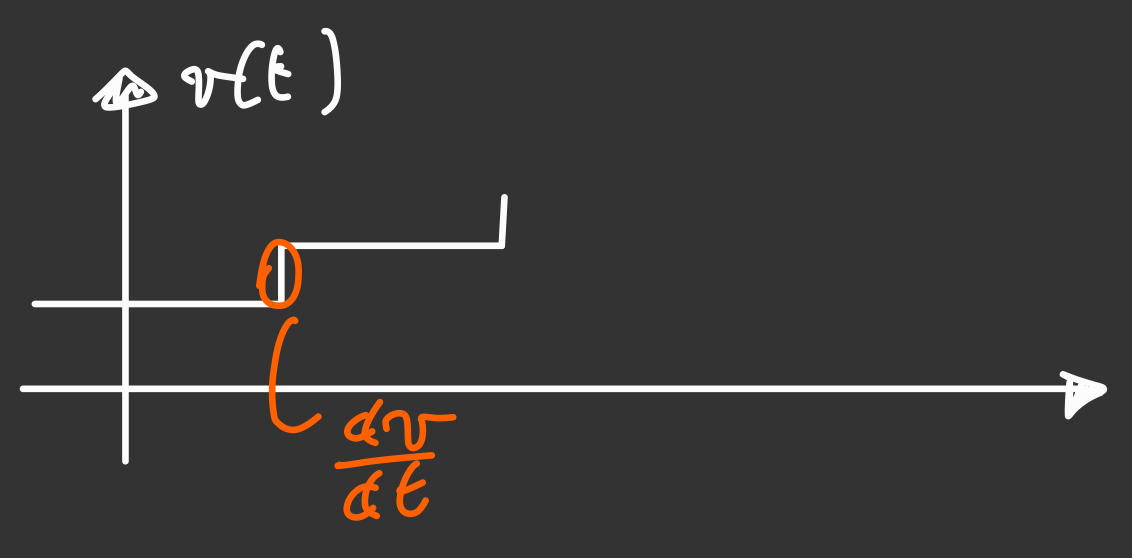 v(t)
dv
dt